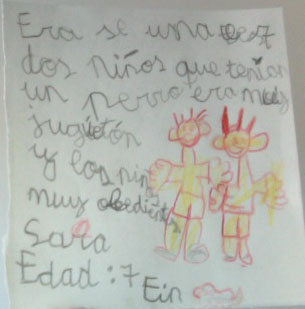 Era se una vez
dos niños que tenían
un perro era muy
juguetón
y los niñ
muy obedientes
Sara
Edad: 7
Ein